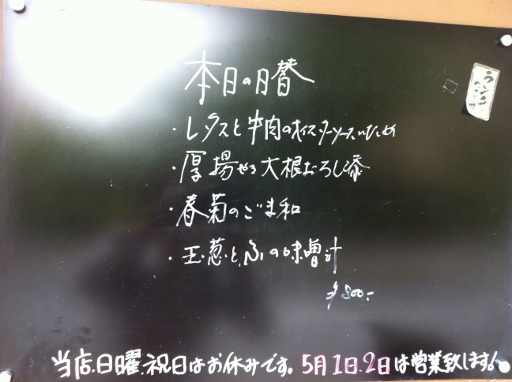 本日の日替
・レタスと牛肉のオイスターソースいため
・厚揚やき大根おろし添
・春菊のごま和
・玉葱とふの味噌汁
¥800-
当店.日曜.祝日はお休みです。5月1日.2日は営業致します!